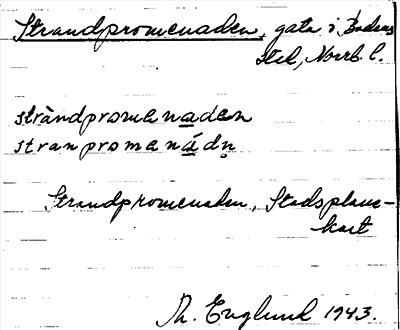 Strandpromenaden, gata i Bodens
std, Norrb. l.
stràndpromenaden
stranpromenádṇ
Strandpromenaden, Stadsplane-
kart
Th. Englund 1943.